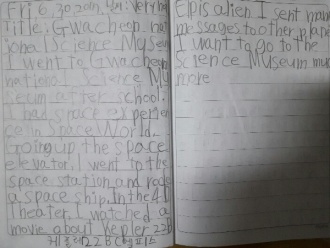 Fri 6.30.2017, Very hot
Title: Gwacheon nat
ional Science Museum
I went to Gwacheon
national Science Mu
seum after school.
I had space experien
ce in Space World.
Going up the space
elevator, I went to the
space station and rode
a space ship. In the 4D
Theater, I watched a
movie about Kepler 22B
22B
Elpis alien I sent many
messages to other plane
I want to go to the
Science Museum mu
more